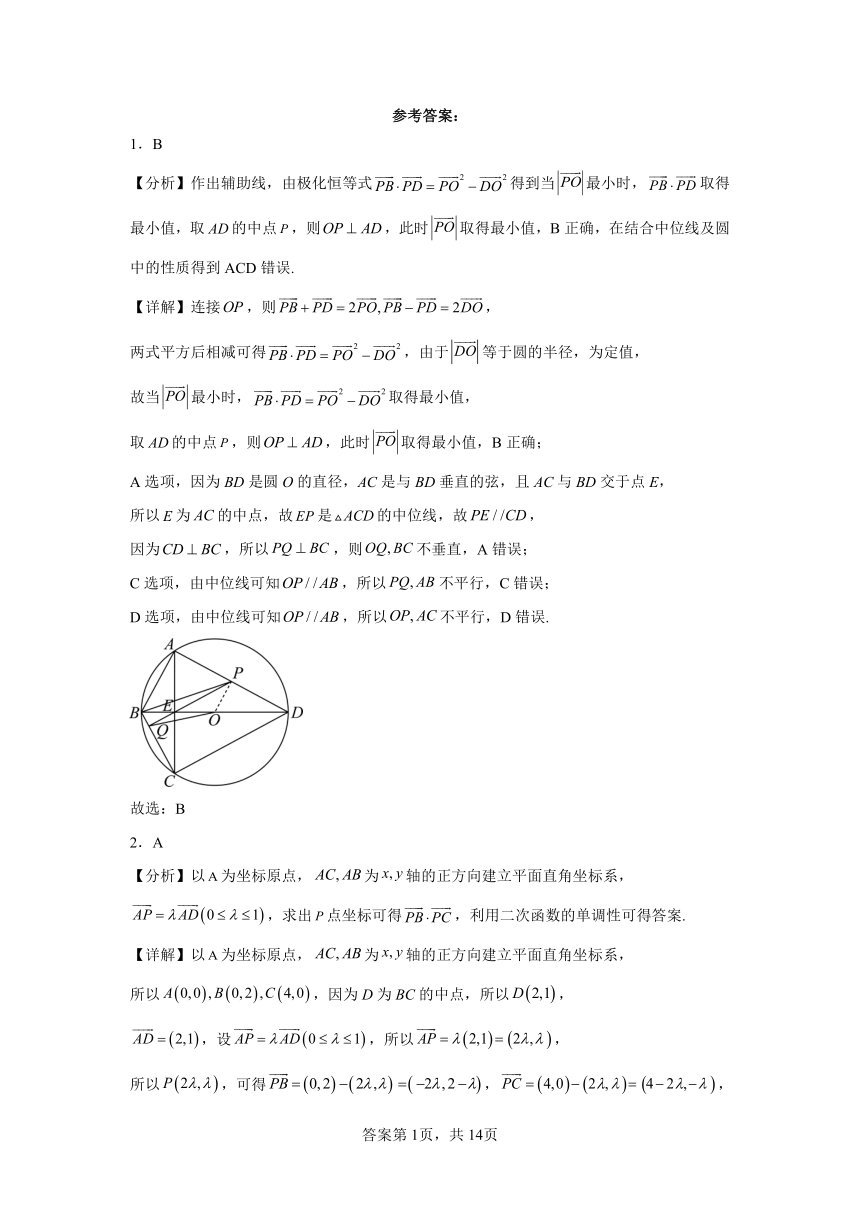 参考答案：
1．B
【分析】作出辅助线，由极化恒等式$\overrightarrow{PB}\cdot\overrightarrow{PD}=\overrightarrow{PO}^2-\overrightarrow{DO}^2$得到当$|\overrightarrow{PO}|$最小时，$\overrightarrow{PB}\cdot\overrightarrow{PD}$取得
最小值，取AD的中点P，则OP⊥AD，此时$|\overrightarrow{PO}|$取得最小值，B正确，在结合中位线及圆
中的性质得到ACD错误.
【详解】连接OP，则$\overrightarrow{PB}+\overrightarrow{PD}=2\overrightarrow{PO},\overrightarrow{PB}-\overrightarrow{PD}=2\overrightarrow{DO}$，
两式平方后相减可得$\overrightarrow{PB}\cdot\overrightarrow{PD}=\overrightarrow{PO}^2-\overrightarrow{DO}^2$，由于$|\overrightarrow{DO}|$等于圆的半径，为定值，
故当$|\overrightarrow{PO}|$最小时，$\overrightarrow{PB}\cdot\overrightarrow{PD}=\overrightarrow{PO}^2-\overrightarrow{DO}^2$取得最小值，
取AD的中点P，则OP⊥AD，此时$|\overrightarrow{PO}|$取得最小值，B正确；
A选项，因为BD是圆O的直径，AC是与BD垂直的弦，且AC与BD交于点E，
所以E为AC的中点，故EP是△ACD的中位线，故PE//CD，
因为CD⊥BC，所以PQ⊥BC，则OQ,BC不垂直，A错误；
C选项，由中位线可知OP//AB，所以PQ,AB不平行，C错误；
D选项，由中位线可知OP//AB，所以OP,AC不平行，D错误.
A
P
B
E
D
Q
O
C
故选：B
2．A
【分析】以A为坐标原点，AC,AB为x,y轴的正方向建立平面直角坐标系，
$\overrightarrow{AP}=\lambda\overrightarrow{AD}(0\le\lambda\le1)$，求出P点坐标可得$\overrightarrow{PB}\cdot\overrightarrow{PC}$，利用二次函数的单调性可得答案.
【详解】以A为坐标原点，AC,AB为x,y轴的正方向建立平面直角坐标系，
所以A(0,0),B(0,2),C(4,0)，因为D为BC的中点，所以D(2,1)，
$\overrightarrow{AD}=(2,1)$，设$\overrightarrow{AP}=\lambda\overrightarrow{AD}(0\le\lambda\le1)$，所以$\overrightarrow{AP}=\lambda(2,1)=(2\lambda,\lambda)$，
所以P(2λ,λ)，可得$\overrightarrow{PB}=(0,2)-(2\lambda,\lambda)=(-2\lambda,2-\lambda)$，$\overrightarrow{PC}=(4,0)-(2\lambda,\lambda)=(4-2\lambda,-\lambda)$，
答案第1页，共14页